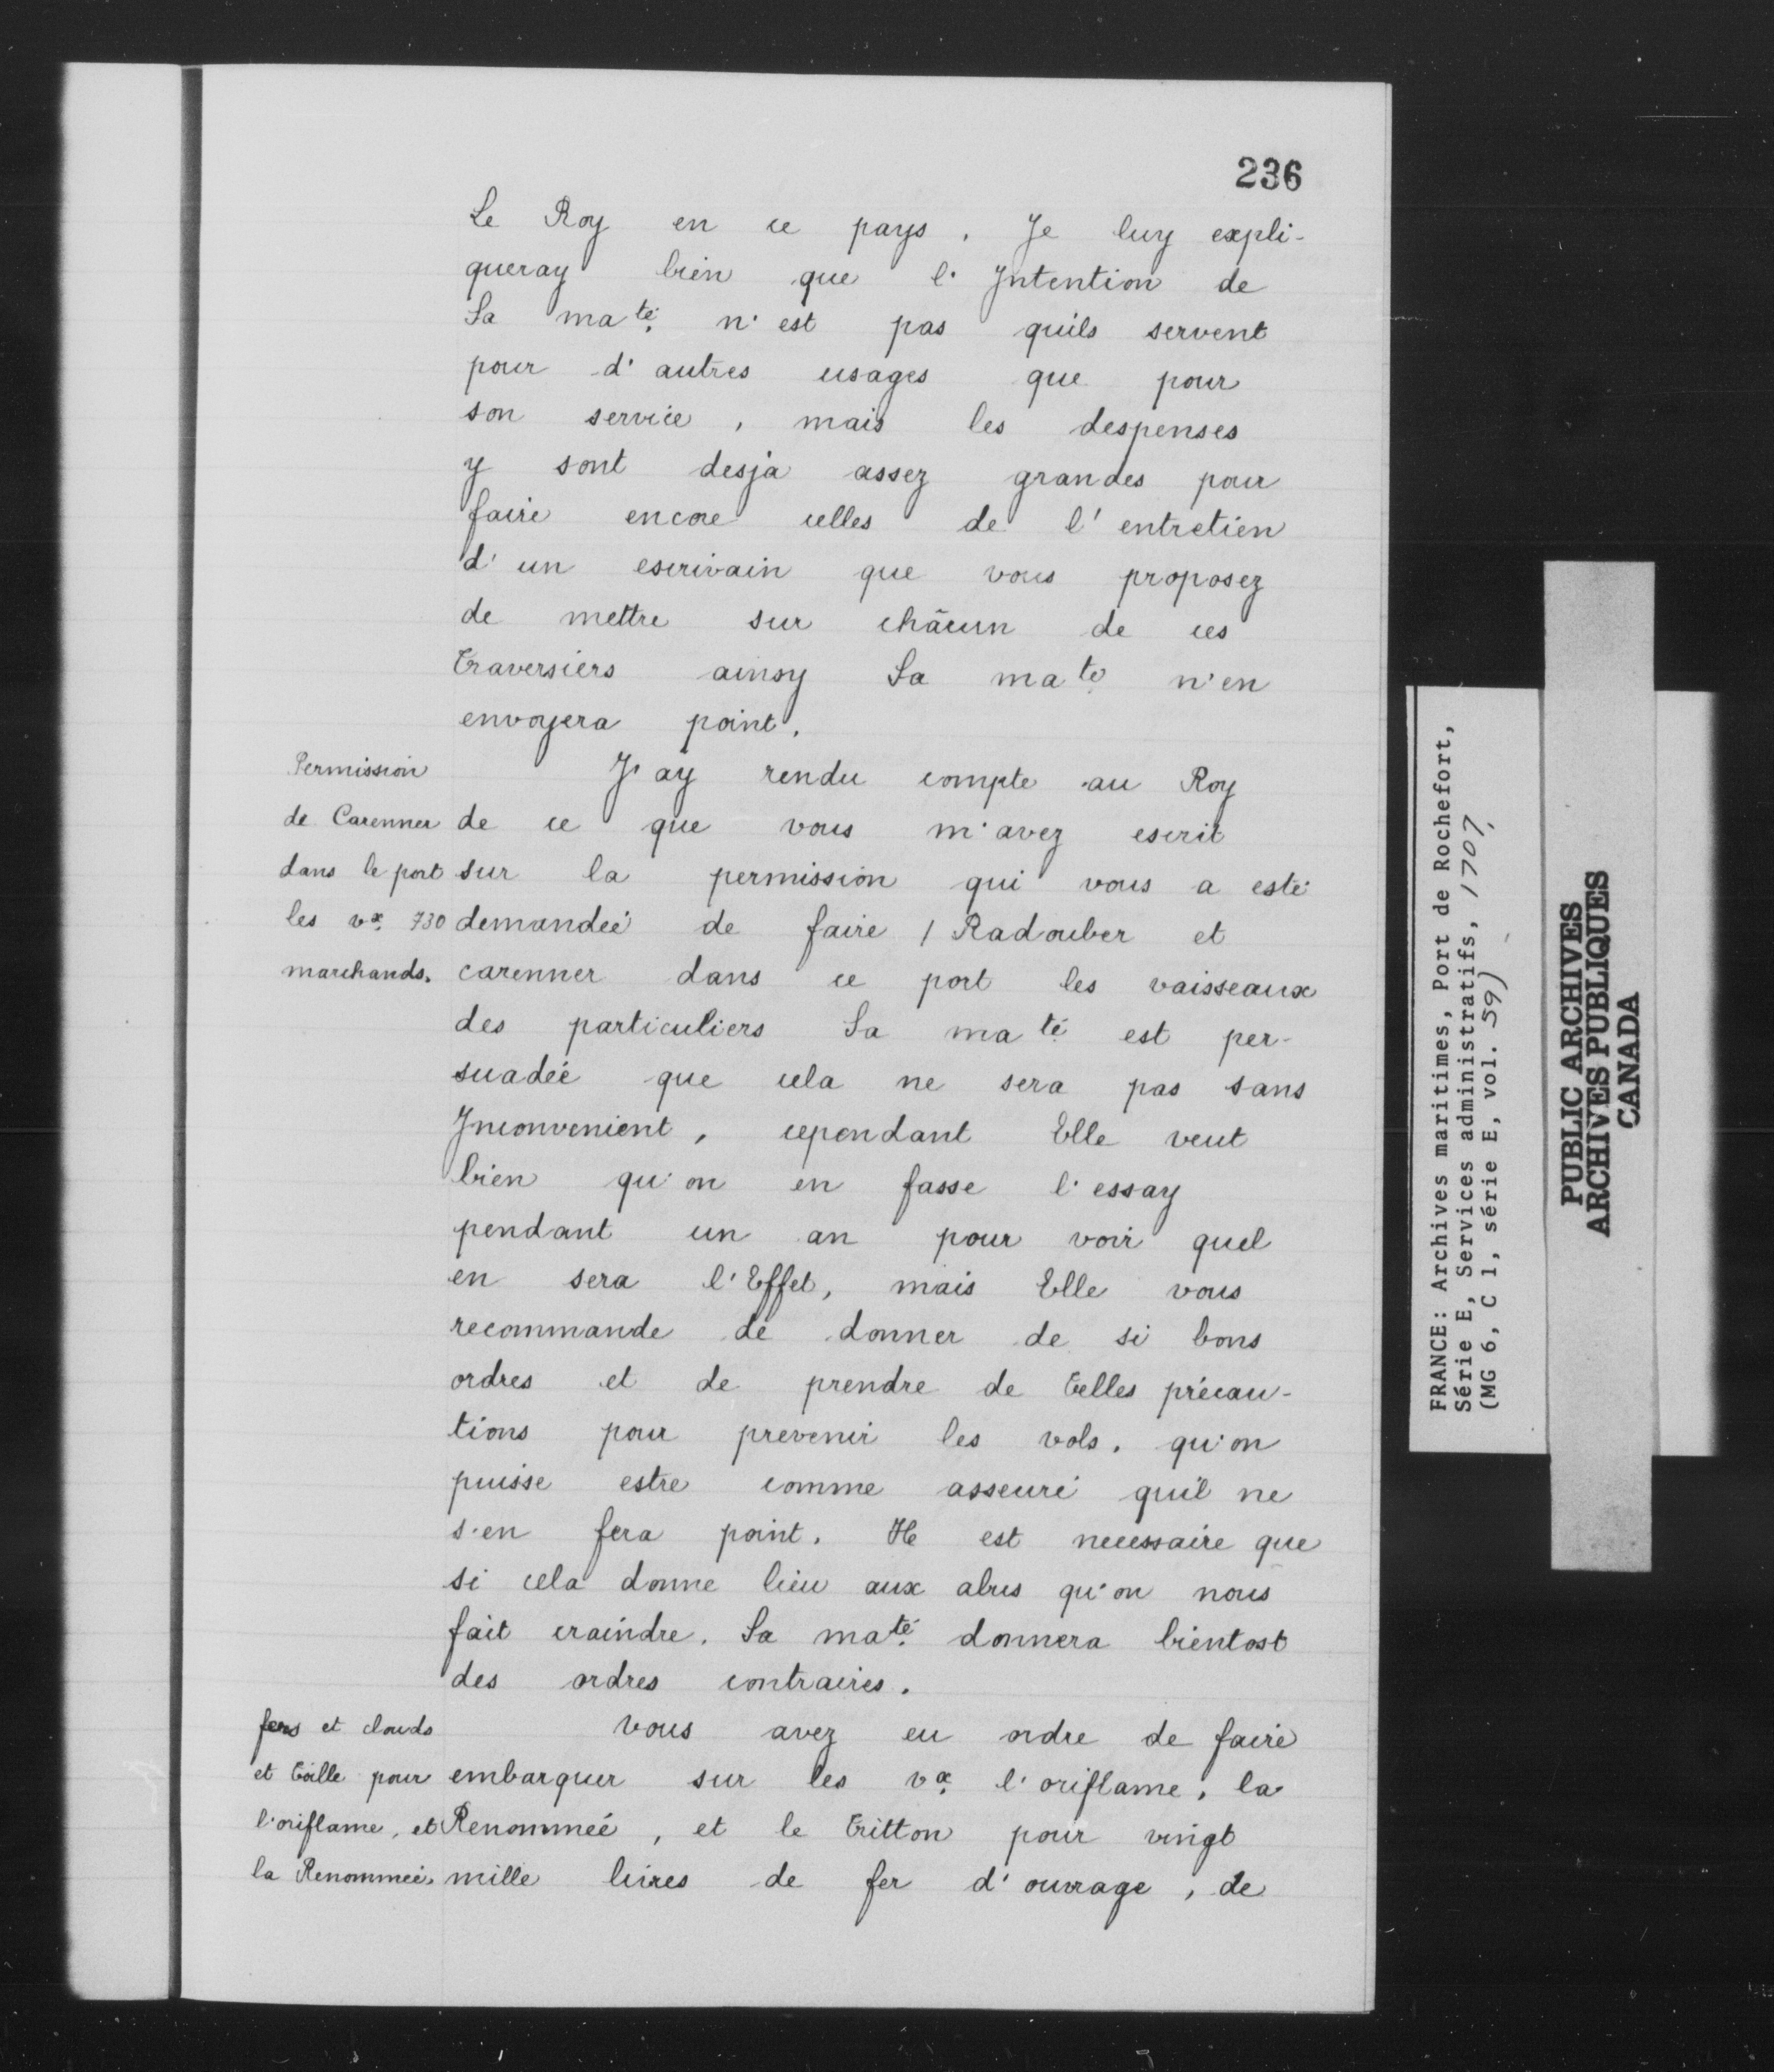 236
Le Roy en ce pays. Je luy expli-
queray bien que l'Intention de
Sa maté n'est pas quils servent
pour d'autres usages que pour
son service, mais les despenses
y sont desja assez grandes pour
faire encore celles de l'entretien
d'un escrivain que vous proposez
de mettre sur châcun de ces
Traversiers ainsy Sa maté n'en
envoyera point.
Permission
de Carenner
dans le port
les vx 730
marchands.
J'ay rendu compte au Roy
de ce que vous m'avez escrit
sur la permission qui vous a esté
demandée de faire / Radouber et
carenner dans ce port les vaisseaux
des particuliers Sa maté est per-
suadée que cela ne sera pas sans
Inconvenient, cependant Elle veut
bien qu'on en fasse l'essay
pendant un an pour voir quel
en sera l'Effet, mais Elle vous
recommande de donner de si bons
ordres et de prendre de Telles précau-
tions pour prevenir les vols, qu'on
puisse estre comme asseuré quil ne
s'en fera point. Il est necessaire que
si cela donne lieu aux abus qu'on nous
fait craindre. Sa maté donnera bientost
des ordres contraires.
fers et clouds
et Tôlle pour
l'oriflame, et
la Renommée.
Vous avez eu ordre de faire
embarquer sur les vx l'oriflame, la
Renommée, et le Tritton pour vingt
mille livres de fer d'ouvrage, de
FRANCE: Archives maritimes, Port de Rochefort,
Série E, Services administratifs, 1707,
(MG 6, C 1, série E, vol. 59)
PUBLIC ARCHIVES
ARCHIVES PUBLIQUES
CANADA